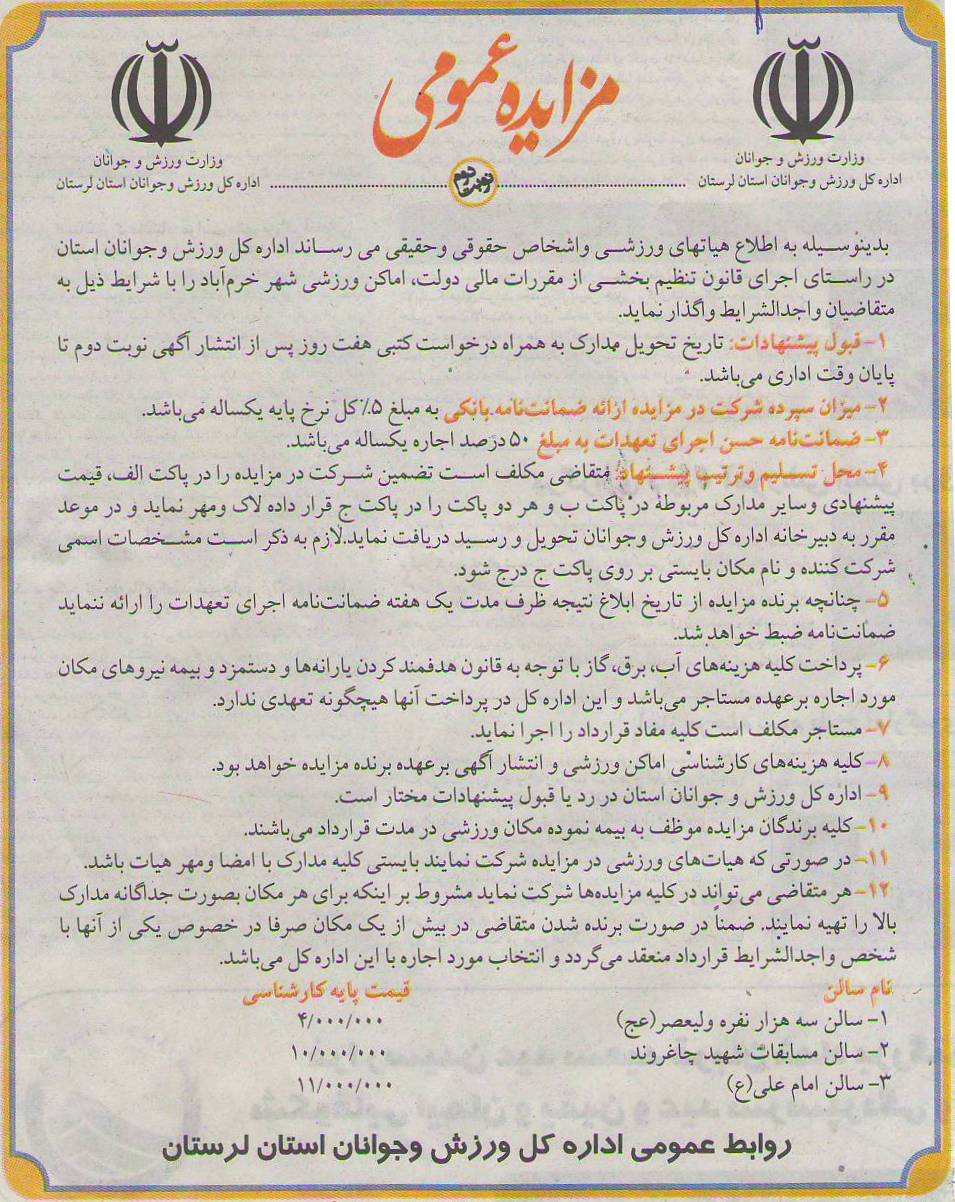 مزایده عمومی
وزارت ورزش و جوانان
اداره کل ورزش وجوانان استان لرستان
نوبت دوم
وزارت ورزش و جوانان
اداره کل ورزش وجوانان استان لرستان
بدینوسیله به اطلاع هیاتهای ورزشی واشخاص حقوقی وحقیقی می رساند اداره کل ورزش وجوانان استان
در راستای اجرای قانون تنظیم بخشی از مقررات مالی دولت، اماکن ورزشی شهر خرم‌آباد را با شرایط ذیل به
متقاضیان واجدالشرایط واگذار نماید.
۱- قبول پیشنهادات: تاریخ تحویل مدارک به همراه درخواست کتبی هفت روز پس از انتشار آگهی نوبت دوم تا
پایان وقت اداری می‌باشد.
۲- میزان سپرده شرکت در مزایده ارائه ضمانت‌نامه بانکی به مبلغ ۵٪ کل نرخ پایه یکساله می‌باشد.
۳- ضمانت‌نامه حسن اجرای تعهدات به مبلغ ۵۰ درصد اجاره یکساله می‌باشد.
۴- محل تسلیم وترتیب پیشنهاد: متقاضی مکلف است تضمین شرکت در مزایده را در پاکت الف، قیمت
پیشنهادی وسایر مدارک مربوطه در پاکت ب و هر دو پاکت را در پاکت ج قرار داده لاک ومهر نماید و در موعد
مقرر به دبیرخانه اداره کل ورزش وجوانان تحویل و رسید دریافت نماید.لازم به ذکر است مشخصات اسمی
شرکت کننده و نام مکان بایستی بر روی پاکت ج درج شود.
۵- چنانچه برنده مزایده از تاریخ ابلاغ نتیجه ظرف مدت یک هفته ضمانت‌نامه اجرای تعهدات را ارائه ننماید
ضمانت‌نامه ضبط خواهد شد.
۶- پرداخت کلیه هزینه‌های آب، برق، گاز با توجه به قانون هدفمند کردن یارانه‌ها و دستمزد و بیمه نیروهای مکان
مورد اجاره برعهده مستاجر می‌باشد و این اداره کل در پرداخت آنها هیچگونه تعهدی ندارد.
۷- مستاجر مکلف است کلیه مفاد قرارداد را اجرا نماید.
۸- کلیه هزینه‌های کارشناسی اماکن ورزشی و انتشار آگهی برعهده برنده مزایده خواهد بود.
۹- اداره کل ورزش و جوانان استان در رد یا قبول پیشنهادات مختار است.
۱۰- کلیه برندگان مزایده موظف به بیمه نموده مکان ورزشی در مدت قرارداد می‌باشند.
۱۱- در صورتی که هیات‌های ورزشی در مزایده شرکت نمایند بایستی کلیه مدارک با امضا ومهر هیات باشد.
۱۲- هر متقاضی می‌تواند در کلیه مزایده‌ها شرکت نماید مشروط بر اینکه برای هر مکان بصورت جداگانه مدارک
بالا را تهیه نمایند. ضمناً در صورت برنده شدن متقاضی در بیش از یک مکان صرفا در خصوص یکی از آنها با
شخص واجدالشرایط قرارداد منعقد می‌گردد و انتخاب مورد اجاره با این اداره کل می‌باشد.
نام سالن قیمت پایه کارشناسی
۱- سالن سه هزار نفره ولیعصر(عج) ۴/۰۰۰/۰۰۰
۲- سالن مسابقات شهید چاغروند ۱۰/۰۰۰/۰۰۰
۳- سالن امام علی(ع) ۱۱/۰۰۰/۰۰۰
روابط عمومی اداره کل ورزش وجوانان استان لرستان